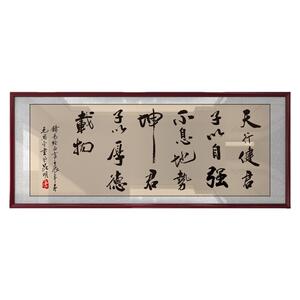 天行健君
子以自强
不息地勢
坤君
子以厚德
載物